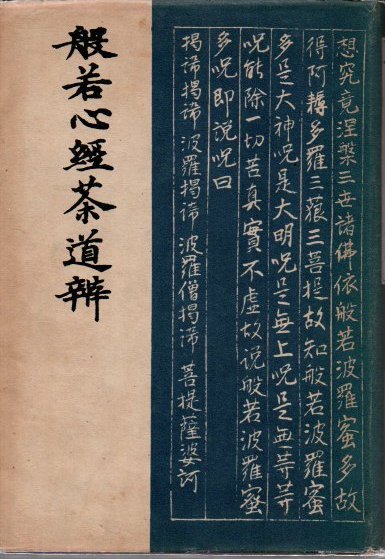 般若心經茶道辨
想究竟涅槃三世諸佛依般若波羅蜜多故
得阿耨多羅三藐三菩提故知般若波羅蜜
多是大神呪是大明呪是無上呪是無等等
呪能除一切苦真實不虛故説般若波羅蜜
多呪即説呪曰
揭諦揭諦 波羅揭諦 波羅僧揭諦 菩提薩婆訶